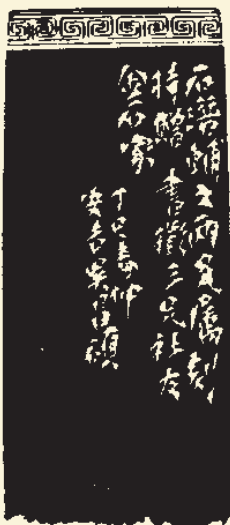 石潛輔之兩兄屬刻
持贈 書徵三兄社友
金石家 丁巳春仲
安吉吳昌碩